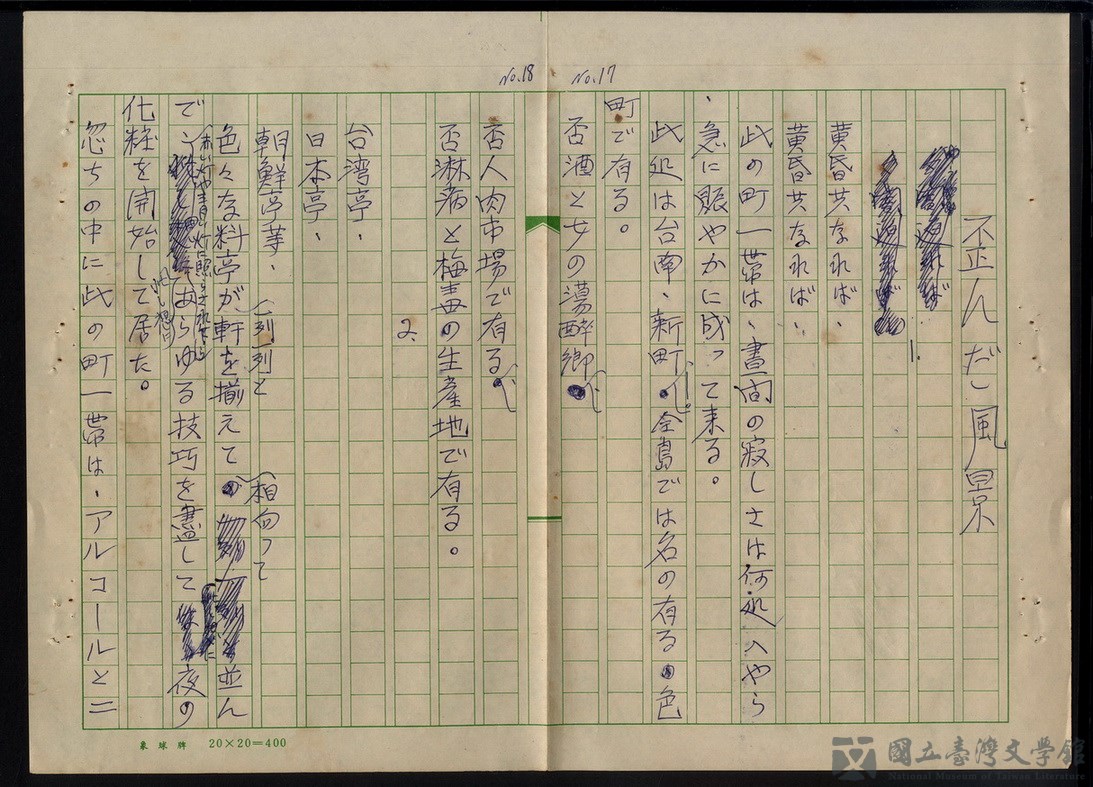 No.17
歪んだ風景
1.
黄昏共なれば、
黄昏共なれば、
此の町一帯は、晝間の寂しさは何処へやら
、急に賑やかに成って来る。
此処は台南、新町。全島では名の有る色
町で有る。
否酒と女の蕩酔郷
No.18
否人肉市場で有る
否淋病と梅毒の生産地で有る。
2.
台湾亭、
日本亭、
朝鮮亭等、
色々な料亭が軒を揃えて一列列と相向って並ん
で赤い灯や青い灯に照らされながらあらゆる技巧を盡して夜の
化粧を開始して居た。
忽ちの中に此の町一帯は、アルコールと二
象球牌 20×20=400
國立臺灣文學館
National Museum of Taiwan Literature